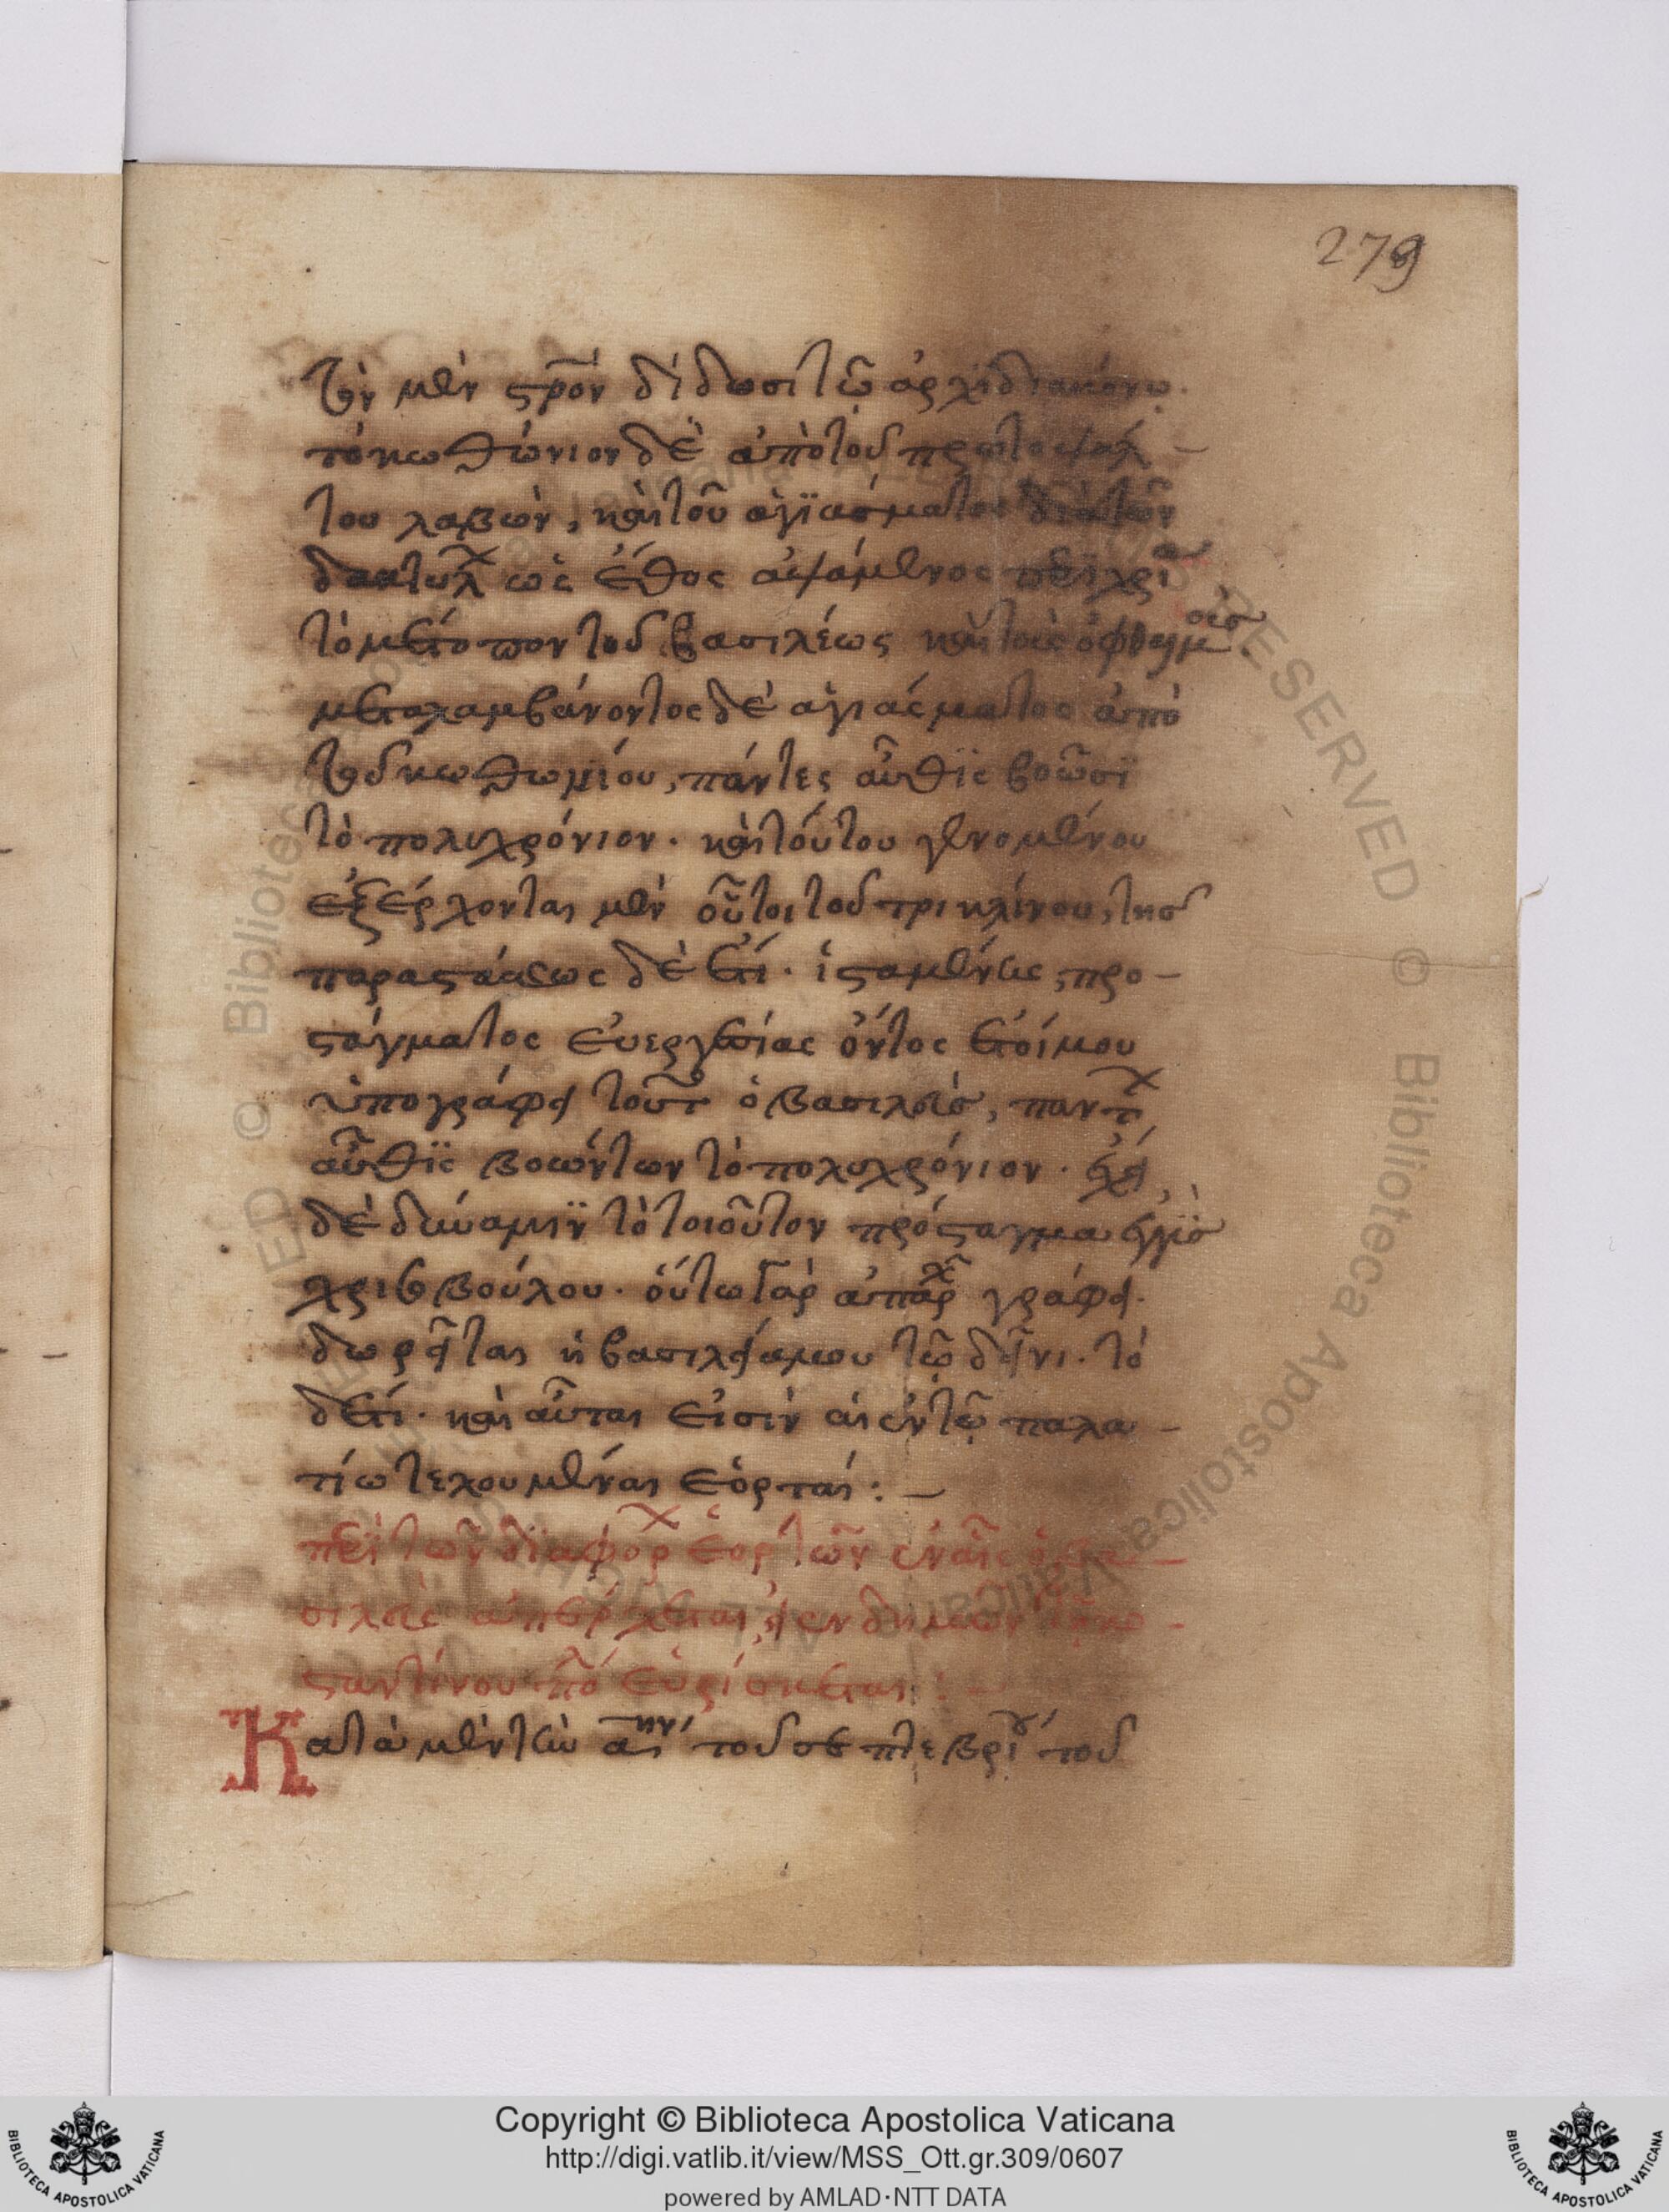 279
τὸν μὲν στ̅ρὸν δίδωσι τῶ ἀρχιδιακόνω·
τὸ κωθώνιον δὲ ἀπὸ τοῦ πρωτοψάλ –
του λαβὼν, καὶ τοῦ ἁγϊάσματος διὰ τῶν
δακτύλ ὡς ἔθος ἁψάμενος περιχρί
τὸ μέτωπον τοῦ βασιλέως καὶ τοὺς ὀφθαλμοὺς
μεταλαμβάνοντος δὲ ἁγιάσματος ἀπὸ
τοῦ κωθωνίου, πάντες αὖθϊς βοῶσϊ
τὸ πολυχρόνιον· καὶ τούτου γενομένου
ἐξέρχονται μὲν οὗτοι τοῦ τρικλίνου, τῆς
παραστάσεως δὲ ἔτι· ἱσταμένης, προ –
στάγματος εὐεργεσίας ὄντος ἑτοίμου
ὑπογράφει τοῦτ ὁ βασιλεὺς, πάντ
αὖθϊς βοώντων τὸ πολυχρόνιον· ἔχει
δὲ δύναμϊν τὸ τοιοῦτον πρόσταγμα ἐγγὺς
χρισοβούλου· οὕτω γὰρ ἀπαρχ γράφει·
δωρεῖται ἡ βασιλεία μου τῶ δεῖνι· τὸ
δέτι· καὶ αὗται εἰσὶν αἱ ἐν τῶ παλα –
τίω τελουμέναι ἑορταί: –
περὶ τῶν διαφόρ ἑορτῶν ἐν αἷς ὁ βα –
σιλεὺς ἀπέρχεται, εἰ ἐνδημῶν τῆ κω –
σταντίνου πό εὑρίσκεται: –
Κατὰ μὲν τὴν α̅ην τοῦ σεπτεβρίου τοῦ
Copyright © Biblioteca Apostolica Vaticana
http://digi.vatlib.it/view/MSS_Ott.gr.309/0607
powered by AMLAD·NTT DATA
BIBLIOTECA APOSTOLICA VATICANA
BIBLIOTECA APOSTOLICA VATICANA